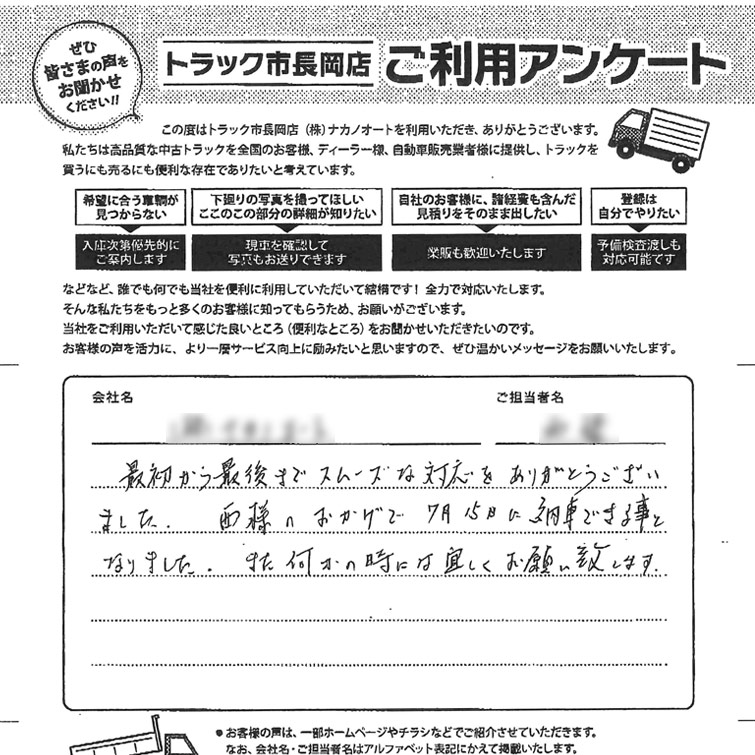 ぜひ
皆さまの声を
お聞かせ
ください!!
トラック市長岡店 ご利用アンケート
この度はトラック市長岡店(株)ナカノオートを利用いただき、ありがとうございます。
私たちは高品質な中古トラックを全国のお客様、ディーラー様、自動車販売業者様に提供し、トラックを
買うにも売るにも便利な存在でありたいと考えています。
希望に合う車輌が
見つからない
入庫次第優先的に
ご案内します
下廻りの写真を撮ってほしい
ここのこの部分の詳細が知りたい
現車を確認して
写真もお送りできます
自社のお客様に、諸経費も含んだ
見積りをそのまま出したい
業販も歓迎いたします
登録は
自分でやりたい
予備検査渡しも
対応可能です
などなど、誰でも何でも当社を便利に利用していただいて結構です!全力で対応いたします。
そんな私たちをもっと多くのお客様に知ってもらうため、お願いがございます。
当社をご利用いただいて感じた良いところ(便利なところ)をお聞かせいただきたいのです。
お客様の声を活力に、より一層サービス向上に励みたいと思いますので、ぜひ温かいメッセージをお願いいたします。
会社名 ご担当者名
最初から最後までスムーズな対応をありがとうござい
ました。西様のおかげで7月15日に納車できる事と
なりました。また何かの時には宜しくお願い致します。
●お客様の声は、一部ホームページやチラシなどでご紹介させていただきます。
なお、会社名・ご担当者名はアルファベット表記にかえて掲載いたします。